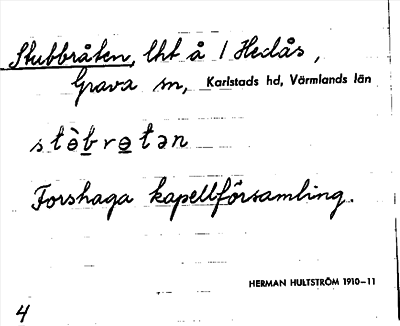 Stubbråten, lht å / Hedås,
Grava sn, Karlstads hd, Värmlands län
stèbrɵtən
Forshaga kapellförsamling.
HERMAN HULTSTRÖM 1910–11
4